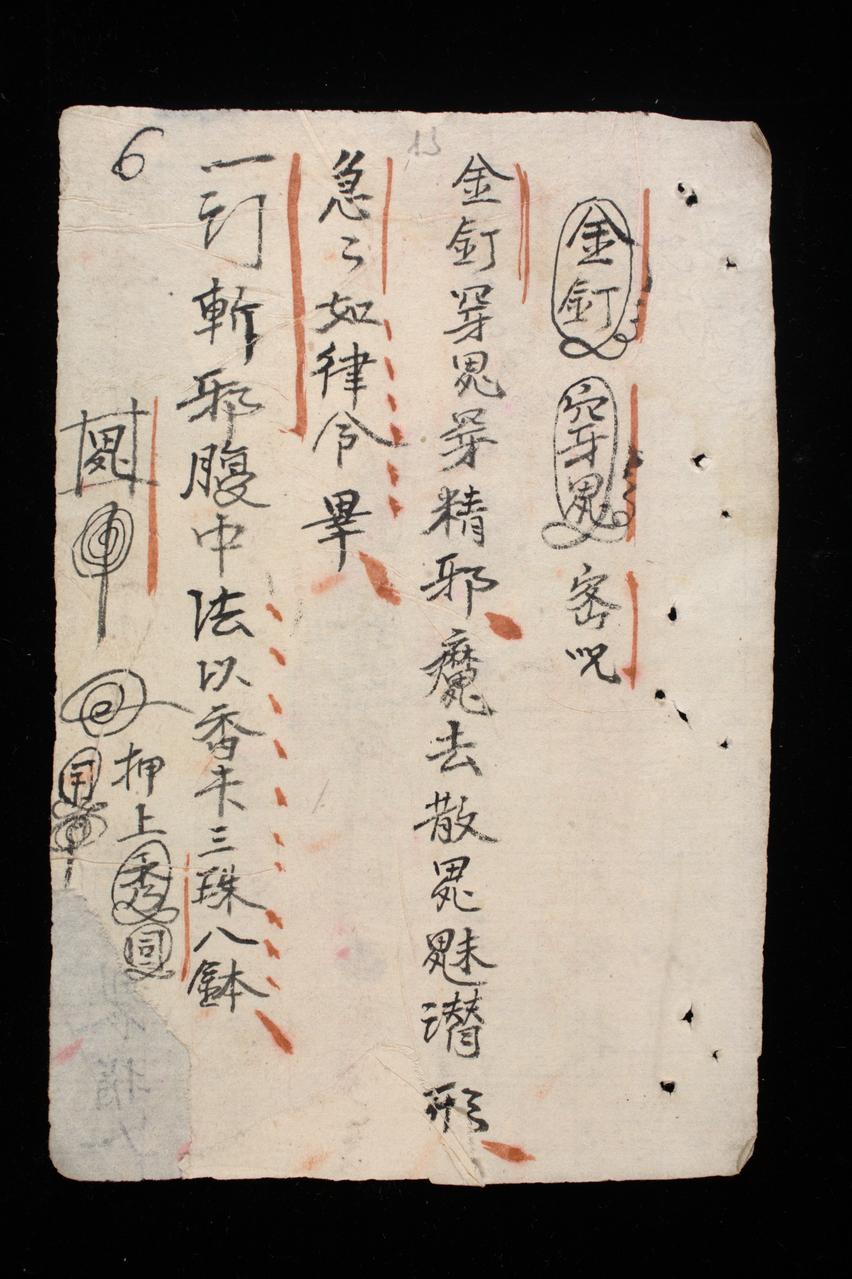 金釘 穿鬼 密咒
金釘穿鬼牙精邪魔去散鬼魅潛形
急々如律令畢
一釘斬邪腹中法以香末三珠八鉢
押上
6